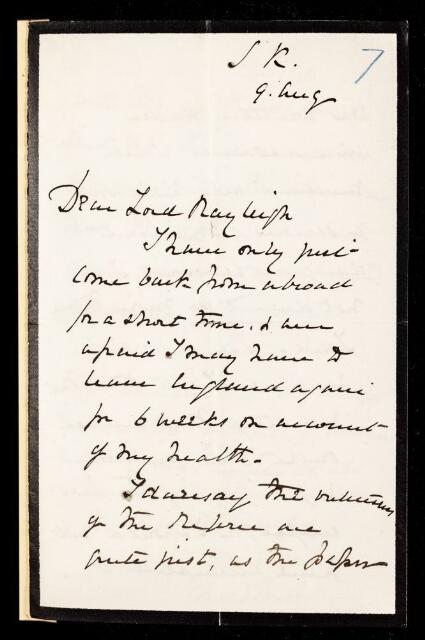 S K.
7
9. Aug
Dear Lord Rayleigh
I have only just
come back from abroad
for a short time. & am
afraid I may have to
leave England again
for 6 weeks on account
of my health.
I daresay the criticisms
of the Referee are
quite just, as the paper